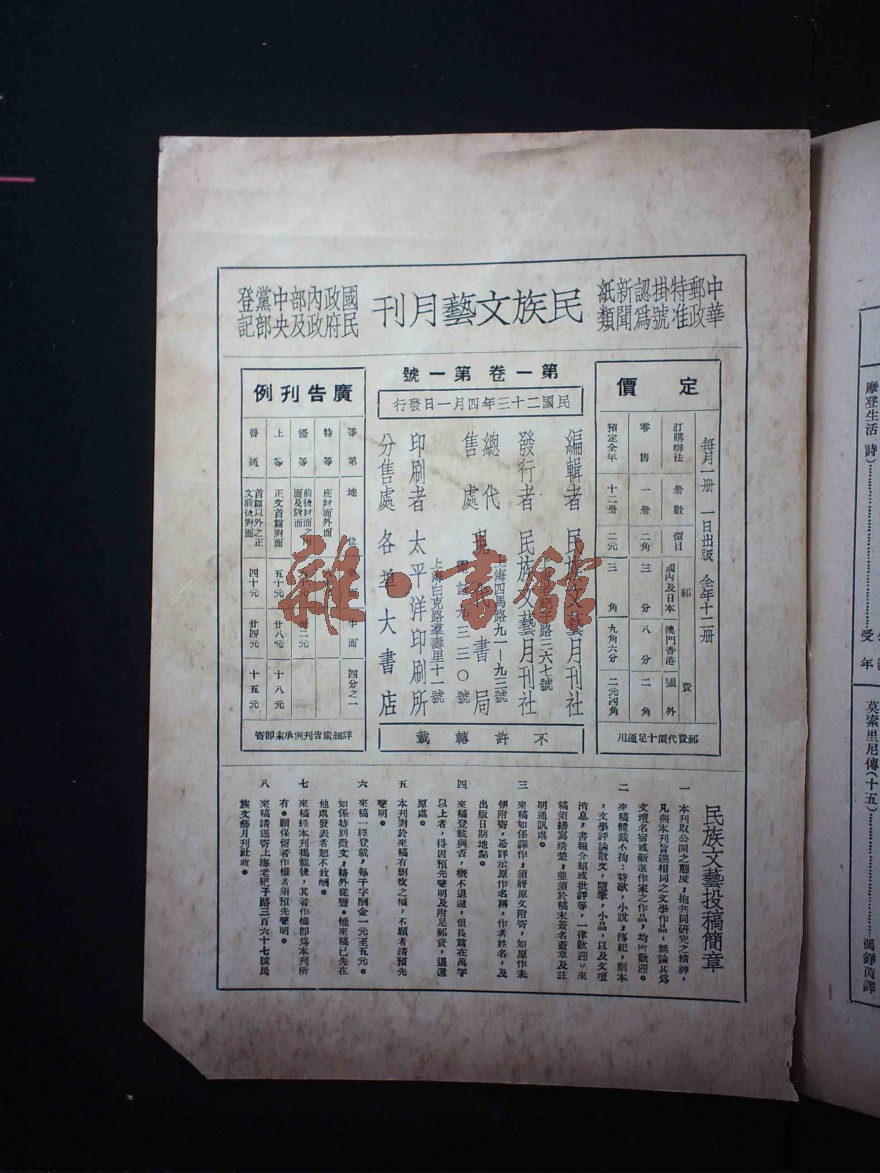 中華郵政特准掛號認為新聞紙類
民族文藝月刊
國民政府內政部及中央黨部登記
定價
每月一冊 一日出版 全年十二冊
訂購辦法 冊數 價目 郵費 國內及日本 澳門香港 國外
零售 一冊 二角 三分 八分 二角
預定全年 十二冊 二元 三角 九角六分 二元四角
郵費代價十足通用
第一卷第一號
民國二十三年四月一日發行
編輯者 民族文藝月刊社
發行者 民族文藝月刊社
路三六七號
總代售處 現代書局
上海四馬路九一—九三號
印刷者 太平洋印刷所
上海白克路羣壽里十一號
分售處 各埠大書店
不許轉載
廣告刊例
等第 地位 全面 半面 四分之一
特等 底封面外面
優等 前後封面之裏面及對面
上等 正文首篇對面 五十元 廿八元 十八元
普通 首篇以外之正文前後對面 四十元 廿四元 十五元
詳細廣告刊例承索即寄
民族文藝投稿簡章
一 本刊取公開之態度，抱共同研究之精神，
凡與本刊旨趣相同之文學作品，無論其為
文壇名宿或新進作家之作品，均所歡迎。
二 來稿體裁不拘：詩歌，小說，傳記，劇本
，文學評論散文，隨筆，小品，以及文壇
消息，書報介紹或批評等，一律歡迎。來
稿須繕寫清楚，並須於稿末簽名蓋章及註
明通訊處。
三 來稿如係譯作，須將原文附寄，如原作未
便附寄，希詳示原作名稱，作者姓名，及
出版日期地點。
四 來稿登載與否，概不退還，但長篇在萬字
以上者，得因預先聲明及附足郵資，退還
原處。
五 本刊對於來稿有刪改之權，不願者請預先
聲明。
六 來稿一經登載，每千字酬金一元至五元。
如係特別徵文，格外從豐。惟來稿已先在
他處發表者恕不致酬。
七 來稿經本刊揭載後，其著作權即為本刊所
有。願保留著作權者須預先聲明。
八 來稿請逕寄上海老靶子路三百六十七號民
族文藝月刊社收。
摩登生活（詩）
莫索里尼傳（十五）
馮錚茵譯
雜·書館